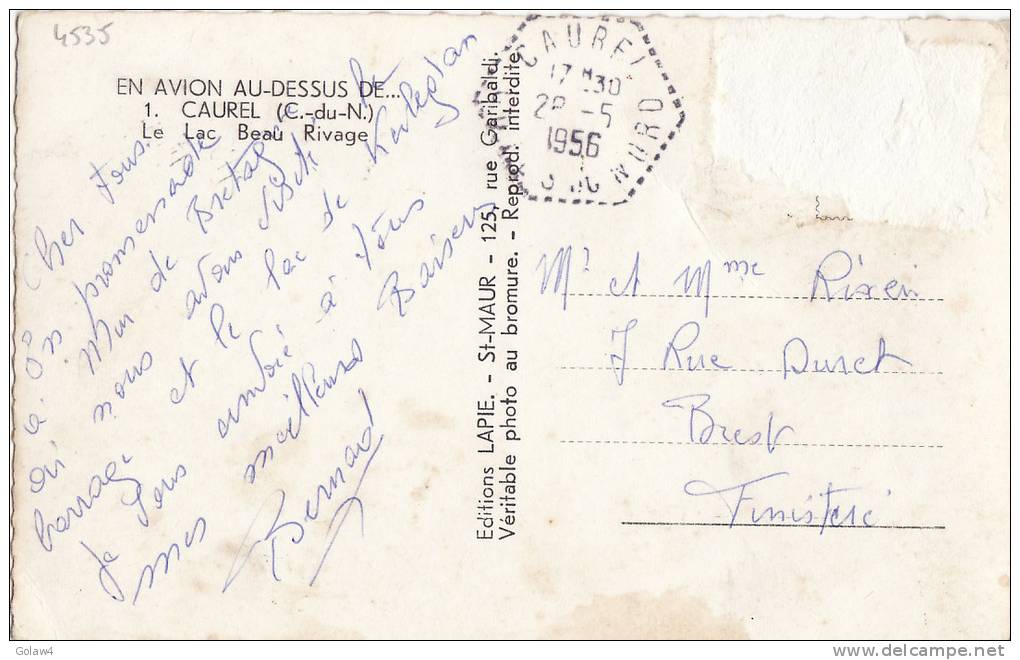 4535
EN AVION AU-DESSUS DE...
1. CAUREL (C.-du-N.)
Le Lac Beau Rivage
Cher tous.
En promenade
à Mur de Bretagne
où nous avons visité le
barrage et le lac de Kerlegan
Je vous envoie à tous
mes meilleurs Baisers
Bernard
Editions LAPIE. - St-MAUR - 125, rue Garibaldi.
Véritable photo au bromure. - Reprod. interdite
CAUREL
17 H 30
28 -5
1956
NORD
Mr et Mme Rixein
7 Rue Duret
Brest
Finistere
Golaw4
delcampe.net